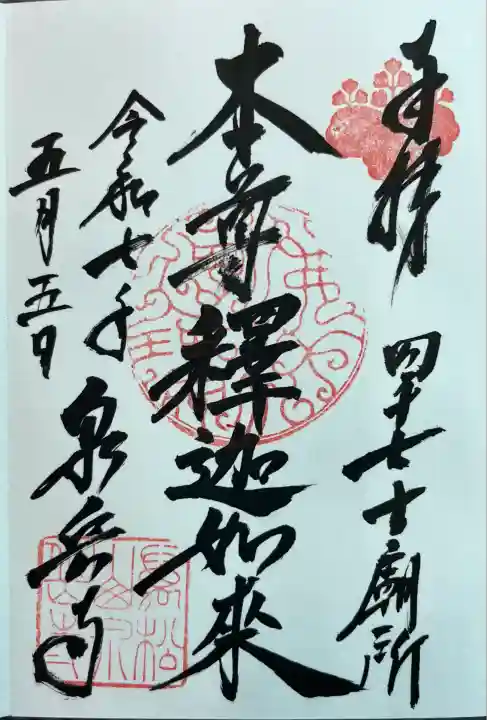 奉拝
四十七士廟所
本尊釋迦如来
令和七年
五月五日
泉岳寺